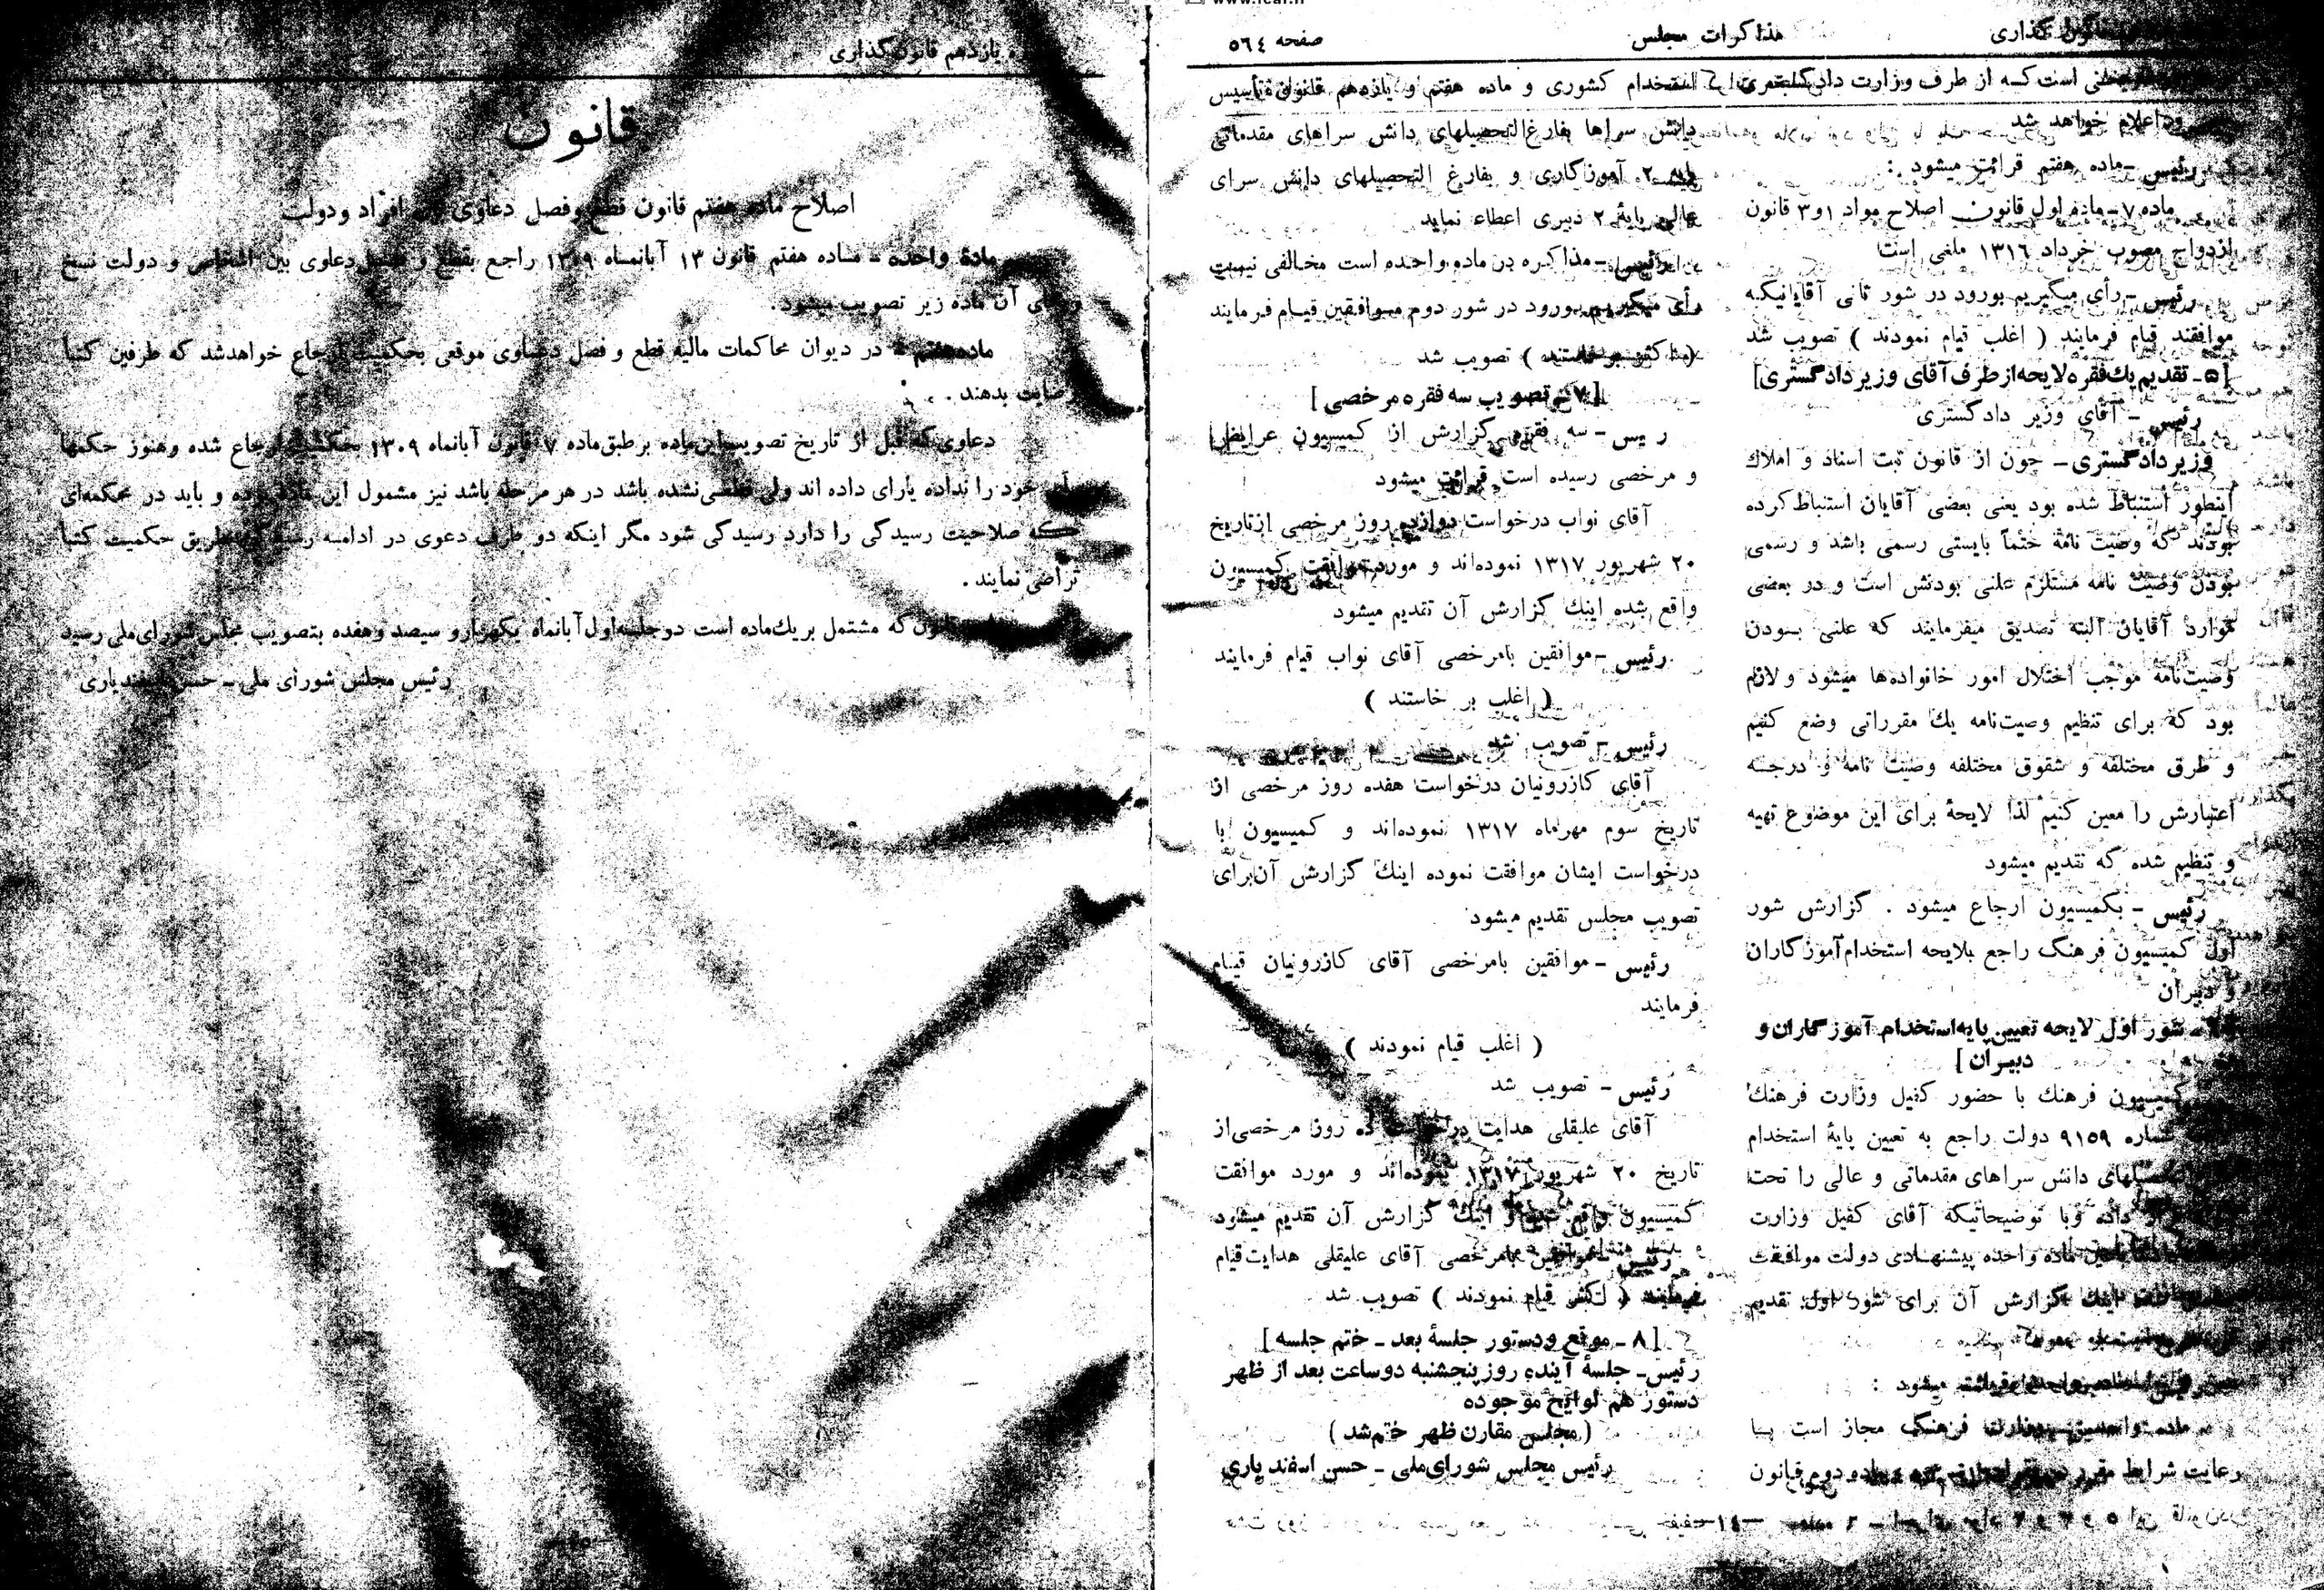 قانون گذاری
مذاکرات مجلس
صفحه ٥٦٤
است که از طرف وزارت دادگستری
و اعلام خواهد شد
رئیس - ماده هفتم قرائت میشود :
ماده ۷ - ماده اول قانون اصلاح مواد ۱و۳ قانون
ازدواج مصوب خرداد ۱۳۱٦ ملغی است
رئیس - رأی میگیریم بورود در شور ثانی آقایانیکه
موافقند قیام فرمایند ( اغلب قیام نمودند ) تصویب شد
[ ٥ - تقدیم یك فقره لایحه از طرف آقای وزیر دادگستری ]
رئیس - آقای وزیر دادگستری
وزیر دادگستری - چون از قانون ثبت اسناد و املاك
اینطور استنباط شده بود یعنی بعضی آقایان استنباط کرده
بودند که وصیت نامه حتماً بایستی رسمی باشد و رسمی
بودن وصیت نامه مستلزم علنی بودنش است و در بعضی
موارد آقایان البته تصدیق میفرمایند که علنی بودن
وصیت‌نامه موجب اختلال امور خانواده‌ها میشود و لازم
بود که برای تنظیم وصیت‌نامه یك مقرراتی وضع کنیم
و طرق مختلفه و شقوق مختلفه وصیت نامه و درجه
اعتبارش را معین کنیم لذا لایحهٔ برای این موضوع تهیه
و تنظیم شده که تقدیم میشود
رئیس - بکمیسیون ارجاع میشود . گزارش شور
اول کمیسیون فرهنگ راجع بلایحه استخدام آموزگاران
و دبیران
شور اول لایحه تعیین پایه استخدام آموزگاران و
دبیران ]
کمیسیون فرهنك با حضور کفیل وزارت فرهنك
شماره ۹۱٥۹ دولت راجع به تعیین پایهٔ استخدام
دانش سراهای مقدماتی و عالی را تحت
داده و با توضیحاتیکه آقای کفیل وزارت
ماده واحده پیشنهادی دولت موافقت
اینك گزارش آن برای شور اول تقدیم
میشود :
فرهنگ مجاز است با
رعایت شرایط مقرر ماده دوم قانون
استخدام کشوری و ماده هفتم و یازدهم قانون تأسیس
دانش سراها بفارغ‌التحصیلهای دانش سراهای مقدماتی
۲ آموزگاری و بفارغ التحصیلهای دانش سرای
عالی پایهٔ ۲ دبیری اعطاء نماید
رئیس - مذاکره در ماده واحده است مخالفی نیست
رأی میگیریم بورود در شور دوم موافقین قیام فرمایند
( اکثر برخاستند ) تصویب شد
[ ۷ - تصویب سه فقره مرخصی ]
رئیس - سه فقره گزارش از کمیسیون عرایض
و مرخصی رسیده است قرائت میشود
آقای نواب درخواست دوازده روز مرخصی از تاریخ
۲۰ شهریور ۱۳۱۷ نموده‌اند و مورد موافقت کمیسیون
واقع شده اینك گزارش آن تقدیم میشود
رئیس - موافقین بامرخصی آقای نواب قیام فرمایند
( اغلب بر خاستند )
رئیس - تصویب شد
آقای کازرونیان درخواست هفده روز مرخصی از
تاریخ سوم مهرماه ۱۳۱۷ نموده‌اند و کمیسیون با
درخواست ایشان موافقت نموده اینك گزارش آن برای
تصویب مجلس تقدیم میشود
رئیس - موافقین بامرخصی آقای کازرونیان قیام
فرمایند
( اغلب قیام نمودند )
رئیس - تصویب شد
آقای علیقلی هدایت درخواست ده روز مرخصی از
تاریخ ۲۰ شهریور ۱۳۱۷ نموده‌اند و مورد موافقت
کمیسیون واقع شده و اینك گزارش آن تقدیم میشود
رئیس - موافقین بامرخصی آقای علیقلی هدایت قیام
فرمایند ( اکثر قیام نمودند ) تصویب شد
[ ۸ - موقع و دستور جلسهٔ بعد - ختم جلسه ]
رئیس - جلسهٔ آینده روز پنجشنبه دوساعت بعد از ظهر
دستور هم لوایح موجوده
( مجلس مقارن ظهر ختم شد )
رئیس مجلس شورای‌ملی - حسن اسفندیاری
یازدهم قانون‌گذاری
قانون
اصلاح ماده هفتم قانون قطع وفصل دعاوی بین افراد ودولت
مادهٔ واحده - ماده هفتم قانون ۱۳ آبانماه ۱۳۰۹ راجع بقطع و فصل دعاوی بین اشخاص و دولت نسخ
و بجای آن ماده زیر تصویب میشود.
ماده هفتم - در دیوان محاکمات مالیه قطع و فصل دعاوی موقعی بحکمیت ارجاع خواهدشد که طرفین کتباً
رضایت بدهند .
دعاوی که قبل از تاریخ تصویب این ماده برطبق ماده ۷ قانون آبانماه ۱۳۰۹ بحکمیت ارجاع شده وهنوز حکمها
رأی خود را نداده یا رای داده اند ولی قطعی نشده باشد در هر مرحله باشد نیز مشمول این ماده بوده و باید در محکمه‌ای
که صلاحیت رسیدگی را دارد رسیدگی شود مگر اینکه دو طرف دعوی در ادامه رسیدگی بطریق حکمیت کتباً
تراضی نمایند .
قانون که مشتمل بر یك ماده است در جلسه اول آبانماه یکهزار و سیصد و هفده بتصویب مجلس شورای ملی رسید
رئیس مجلس شورای ملی - حسن اسفندیاری